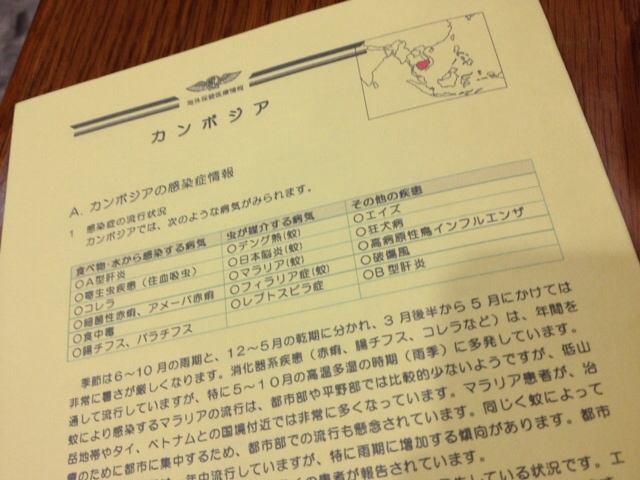 海外保健医療情報
カンボジア
A. カンボジアの感染症情報
1 感染症の流行状況
カンボジアでは、次のような病気がみられます。
食べ物・水から感染する病気 虫が媒介する病気 その他の疾患
○A型肝炎 ○デング熱(蚊) ○エイズ
○寄生虫疾患（住血吸虫） ○日本脳炎(蚊) ○狂犬病
○コレラ ○マラリア(蚊) ○高病原性鳥インフルエンザ
○細菌性赤痢、アメーバ赤痢 ○フィラリア症(蚊) ○破傷風
○食中毒 ○レプトスピラ症 ○B型肝炎
○腸チフス、パラチフス
季節は6～10月の雨期と、12～5月の乾期に分かれ、3月後半から5月にかけては
非常に暑さが厳しくなります。消化器系疾患（赤痢、腸チフス、コレラなど）は、年間を
通して流行していますが、特に5～10月の高温多湿の時期（雨季）に多発しています。
蚊により感染するマラリアの流行は、都市部や平野部では比較的少ないようですが、低山
岳地帯やタイ、ベトナムとの国境付近では非常に多くなっています。マラリア患者が、治
療のために都市に集中するため、都市部での流行も懸念されています。同じく蚊によって
年中流行していますが、特に雨期に増加する傾向があります。都市
の患者が報告されています。
している状況です。エ